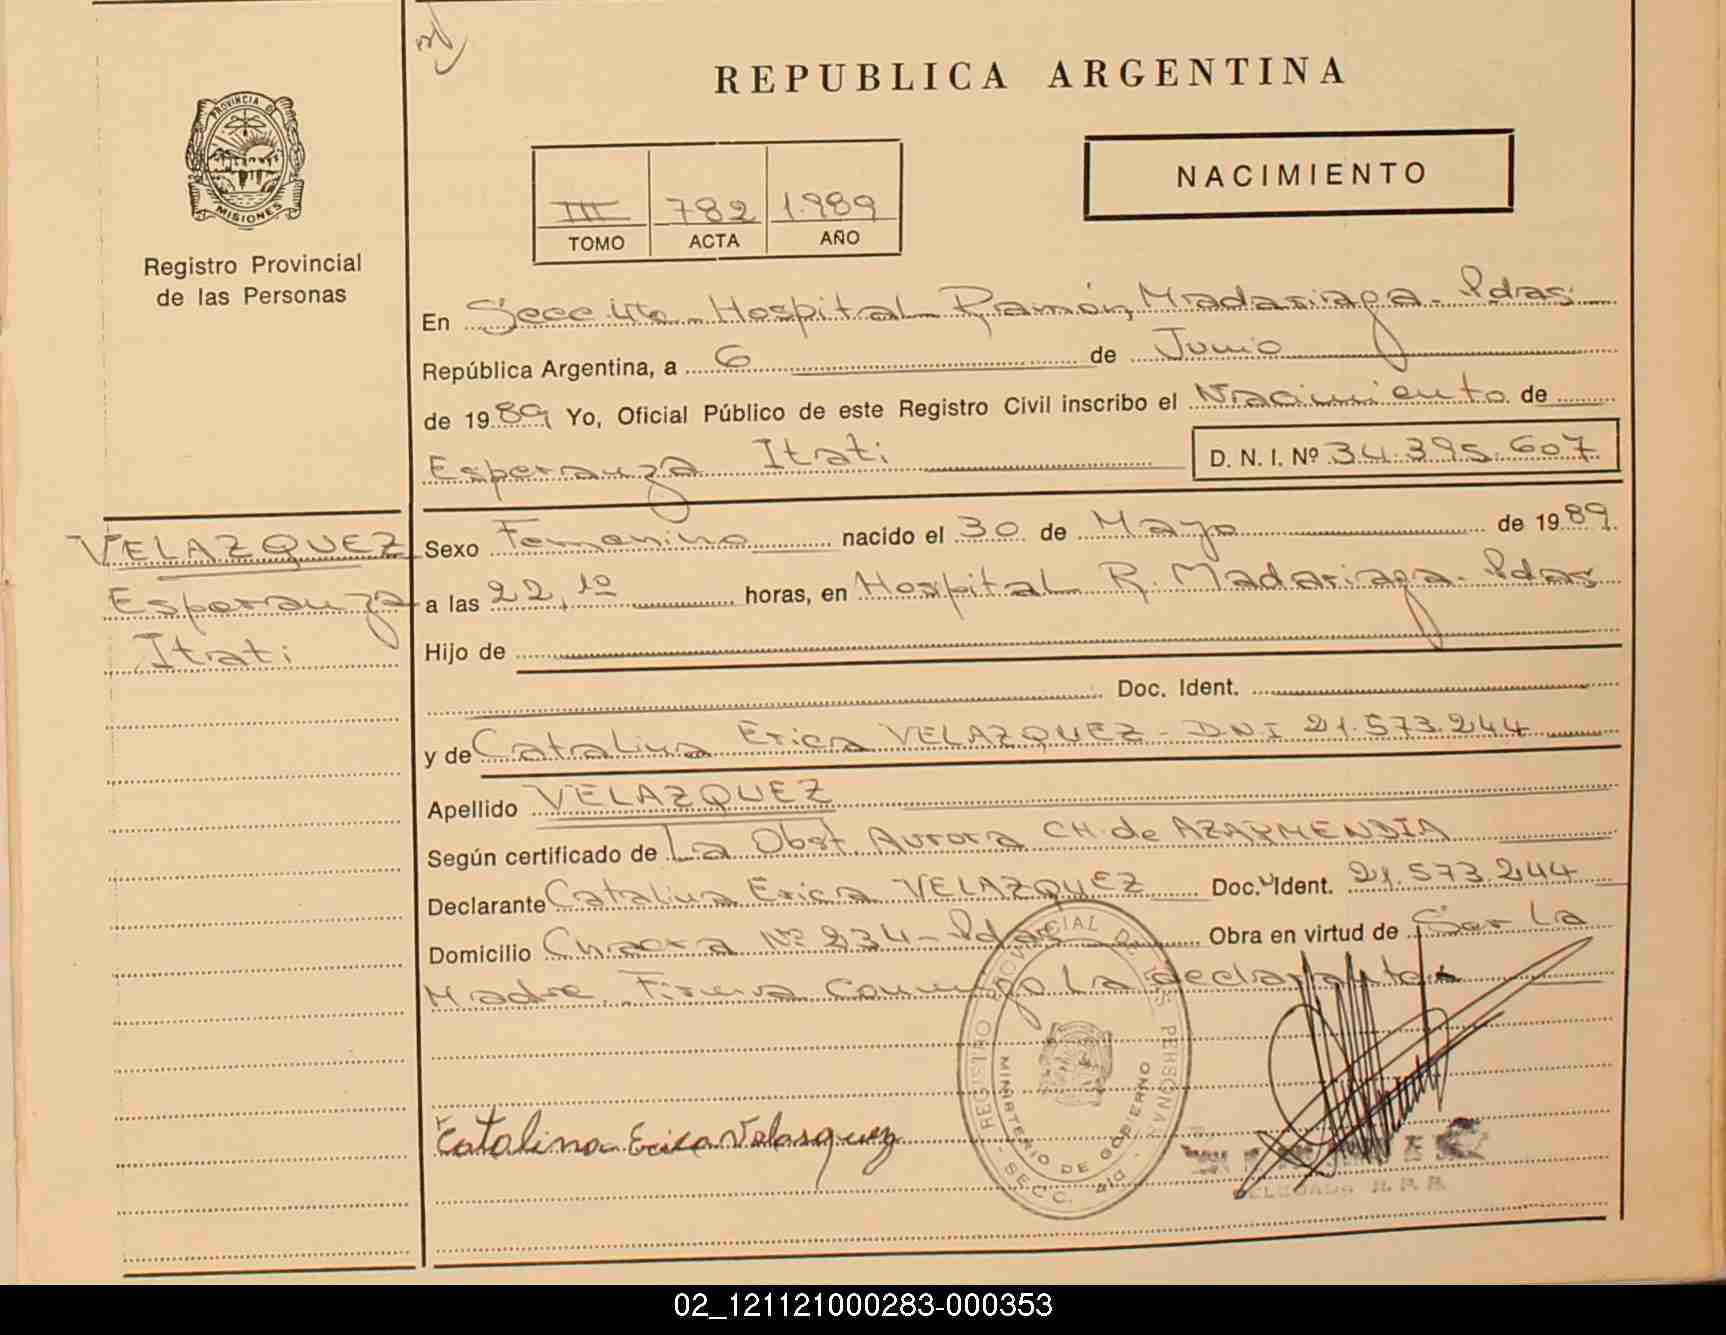 PROVINCIA DE
MISIONES
Registro Provincial
de las Personas
REPUBLICA ARGENTINA
NACIMIENTO
III 782 1.989
TOMO ACTA AÑO
En Secc 4ta. Hospital Ramón Madariaga - Pdas
República Argentina, a 6 de Junio
de 1989 Yo, Oficial Público de este Registro Civil inscribo el Nacimiento de
Esperanza Itati D. N. I. Nº 34.395.607
VELAZQUEZ
Esperanza
Itati
Sexo Femenino nacido el 30 de Mayo de 1989
a las 22,10 horas, en Hospital R. Madariaga - Pdas
Hijo de
Doc. Ident.
y de Catalina Erica VELAZQUEZ - DNI 21.573.244
Apellido VELAZQUEZ
Según certificado de La Obst. Aurora CH. de AZARMENDIA
Declarante Catalina Erica VELAZQUEZ Doc. Ident. 21.573.244
Domicilio Chacra Nº 234 - Pdas Obra en virtud de Ser La
Madre. Firma Conmigo La declarante
REGISTRO PROVINCIAL DE LAS PERSONAS
MINISTERIO DE GOBIERNO
SECC. 4ta
Catalina Erica Velasquez
DELEGADA R. P. P.
02_121121000283-000353